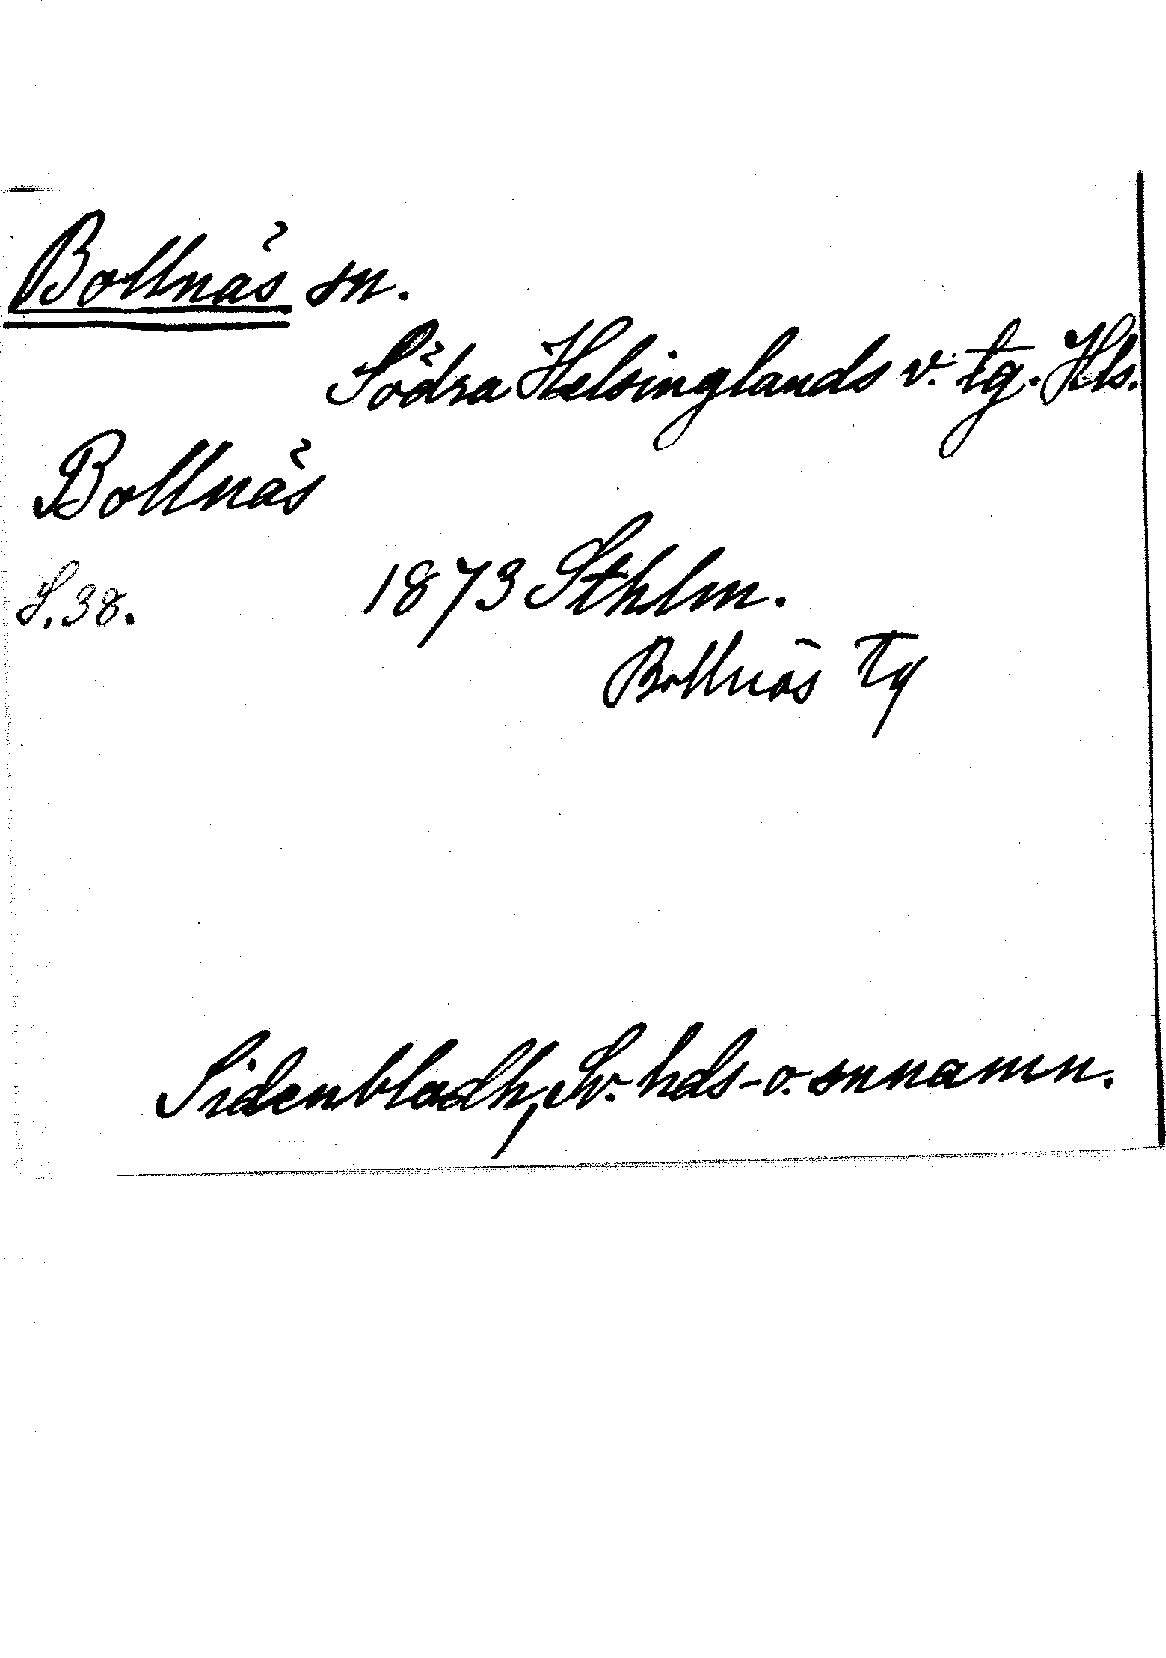 Bollnäs sn.
Södra Helsinglands v. tg. Hls.
Bollnäs
S. 38. 1873 Sthlm.
Bollnäs Tg
Sidenbladh, Sv. hds- o. snnamn.